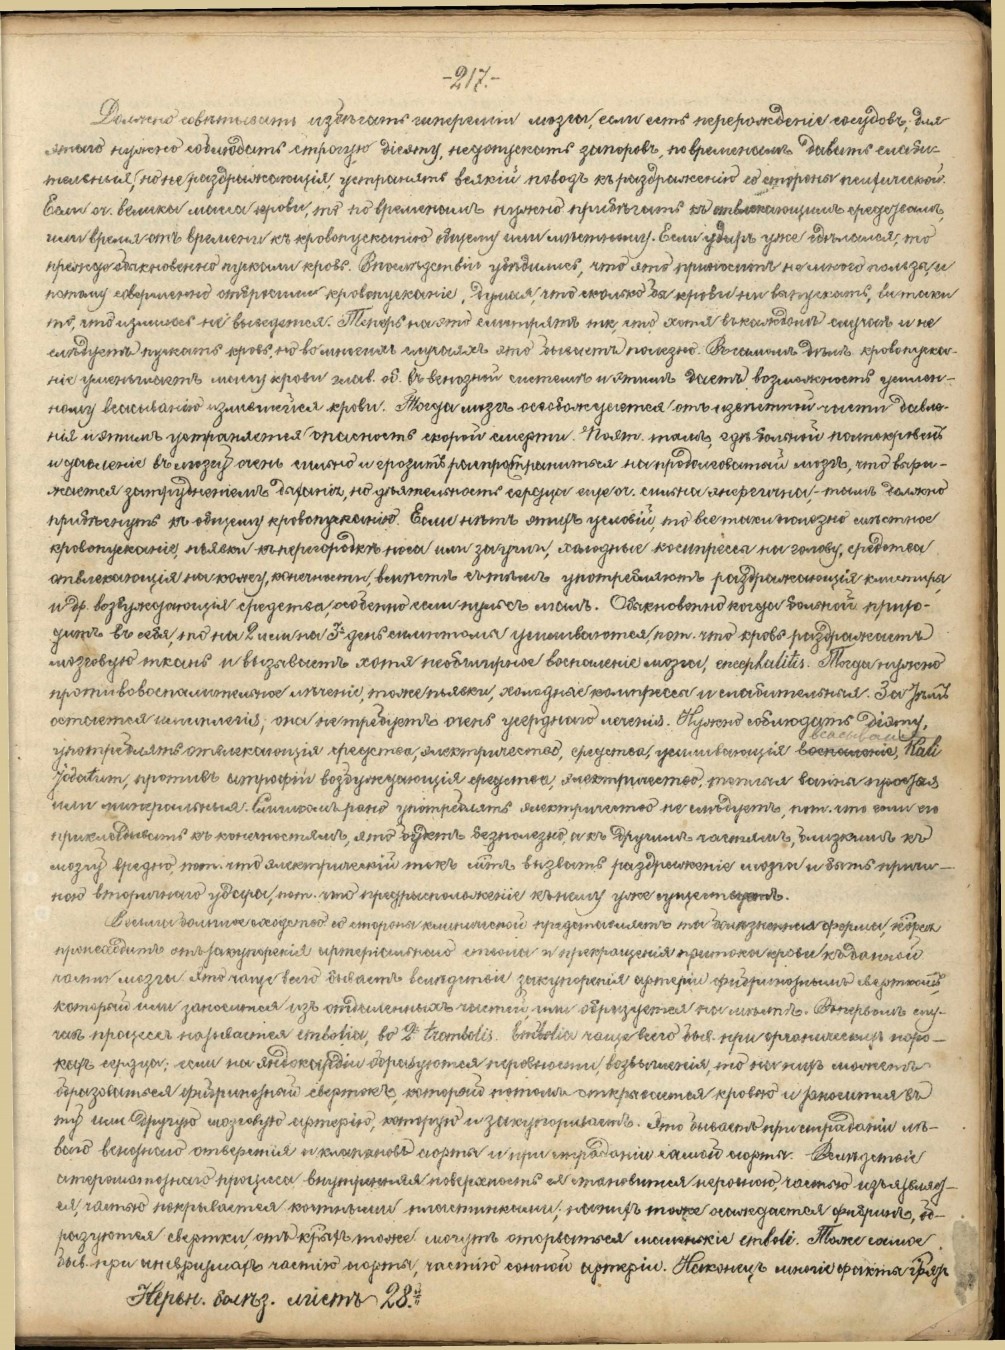 -217.-
Должно совѣтывать избѣгать гипереміи мозга, если есть перерожденіе сосудовъ, для
этого нужно соблюдать строгую діэту, недопускать запоровъ, повременамъ давать слаби-
тельныя, но не раздражающія, устранять всякій поводъ къ раздраженію со стороны психической.
Если оч. велика масса крови, то по временамъ нужно прибѣгать къ отвлекающимъ средствамъ,
или время отъ времени къ кровопусканію общему или мѣстному. Если ударъ уже сдѣлался, то
прежде обыкновенно пускали кровь. Впослѣдствіи убѣдились, что это приноситъ не много пользы и
потому совершенно отбросили кровопусканіе, думая, что сколько бы крови ни выпускать, всетаки
то, что излилось не выведется. Теперь на это смотрятъ такъ, что хотя въ каждомъ случаѣ и не
слѣдуетъ пускать кровь, но во многихъ случаяхъ это бываетъ полезно. Въ самомъ дѣлѣ кровопуска-
ніе уменьшаетъ массу крови глав. об. въ венозной системѣ и этимъ даетъ возможность усилен-
ному всасыванію излившейся крови. Тогда мозгъ освобождается отъ излишней части давле-
нія и этимъ устраняется опасность скорой смерти. Поэт. тамъ, гдѣ больной полнокровенъ
и давленіе въ мозгу очень сильно и грозитъ распространиться на продолговатый мозгъ, что выра-
жается затрудненіемъ дыханія, но дѣятельность сердца еще оч. сильна и энергична, - тамъ должно
прибѣгнуть къ общему кровопусканію. Если нѣтъ этихъ условій, то все таки полезно мѣстное
кровопусканіе, пьявки къ перегородкѣ носа или за уши, холодные компрессы на голову, средства
отвлекающія на кожу, конечности, вмѣстѣ съ тѣмъ употребляютъ раздражающія клистиры
и др. возбуждающія средства, особенно если пульсъ малъ. Обыкновенно когда больной прихо-
дитъ въ себя, то на 2 или на 3й день симптомы усиливаются, пот. что кровь раздражаетъ
мозговую ткань и вызываетъ хотя необширное воспаленіе мозга, encephalitis. Тогда нужно
противовоспалительное лѣченіе, тоже пьявки, холодные компрессы и слабительныя. За тѣмъ
остается гемиплегія; она не требуетъ очень усерднаго леченія. Нужно соблюдать діэту,
всасываніе
употреблять отвлекающія средства, электричество, средства, усиливающія воспаленіе, Kali
Jodatum, противъ атрофіи возбуждающія средства, электричество, теплыя ванны простыя
или минеральныя. Слишкомъ рано употреблять электричество не слѣдуетъ, пот. что если его
прикладывать къ конечностямъ, это будетъ безполезно, а къ другимъ частямъ, близкимъ къ
мозгу вредно, пот. что электрическій токъ мож. вызвать раздраженіе мозга и быть причи-
ною вторичнаго удара, пот. что предрасположеніе къ нему уже существуетъ.
Весьма большое сходство со стороны клинической представляетъ та болѣзненная форма, которая
происходитъ отъ закупоренія артеріальнаго ствола и прекращенія притока крови къ данной
части мозга. Это чаще всего бываетъ вслѣдствіи закупоренія артеріи фибринознымъ сверткомъ,
который или заносится изъ отдаленныхъ частей, или образуется на мѣстѣ. Въ первомъ слу-
чаѣ процессъ называется embolia, во 2мъ trombosis. Embolia чаще всего быв. при органическихъ поро-
кахъ сердца; если на эндокардіи образуются неровности, возвышенія, то на нихъ можетъ
образоваться фибринозный свертокъ, который потомъ отрывается кровью и уносится въ
ту или другую мозговую артерію, которую и закупориваетъ. Это бываетъ при страданіи лѣ-
ваго венознаго отверстія и клапановъ аорты и при страданіи самой аорты. Вслѣдствіе
атероматознаго процесса внутренняя поверхность ея становится неровною, частью изъязвляет-
ся, частью покрывается костными пластинками; на нихъ тоже осаждается фибринъ, об-
разуются свертки, отъ крыхъ тоже могутъ оторваться маленькіе emboli. Тоже самое
быв. при аневризмахъ частію аорты, частію сонной артеріи. Наконецъ многіе факты
Нервн. болѣз. листъ 28.й